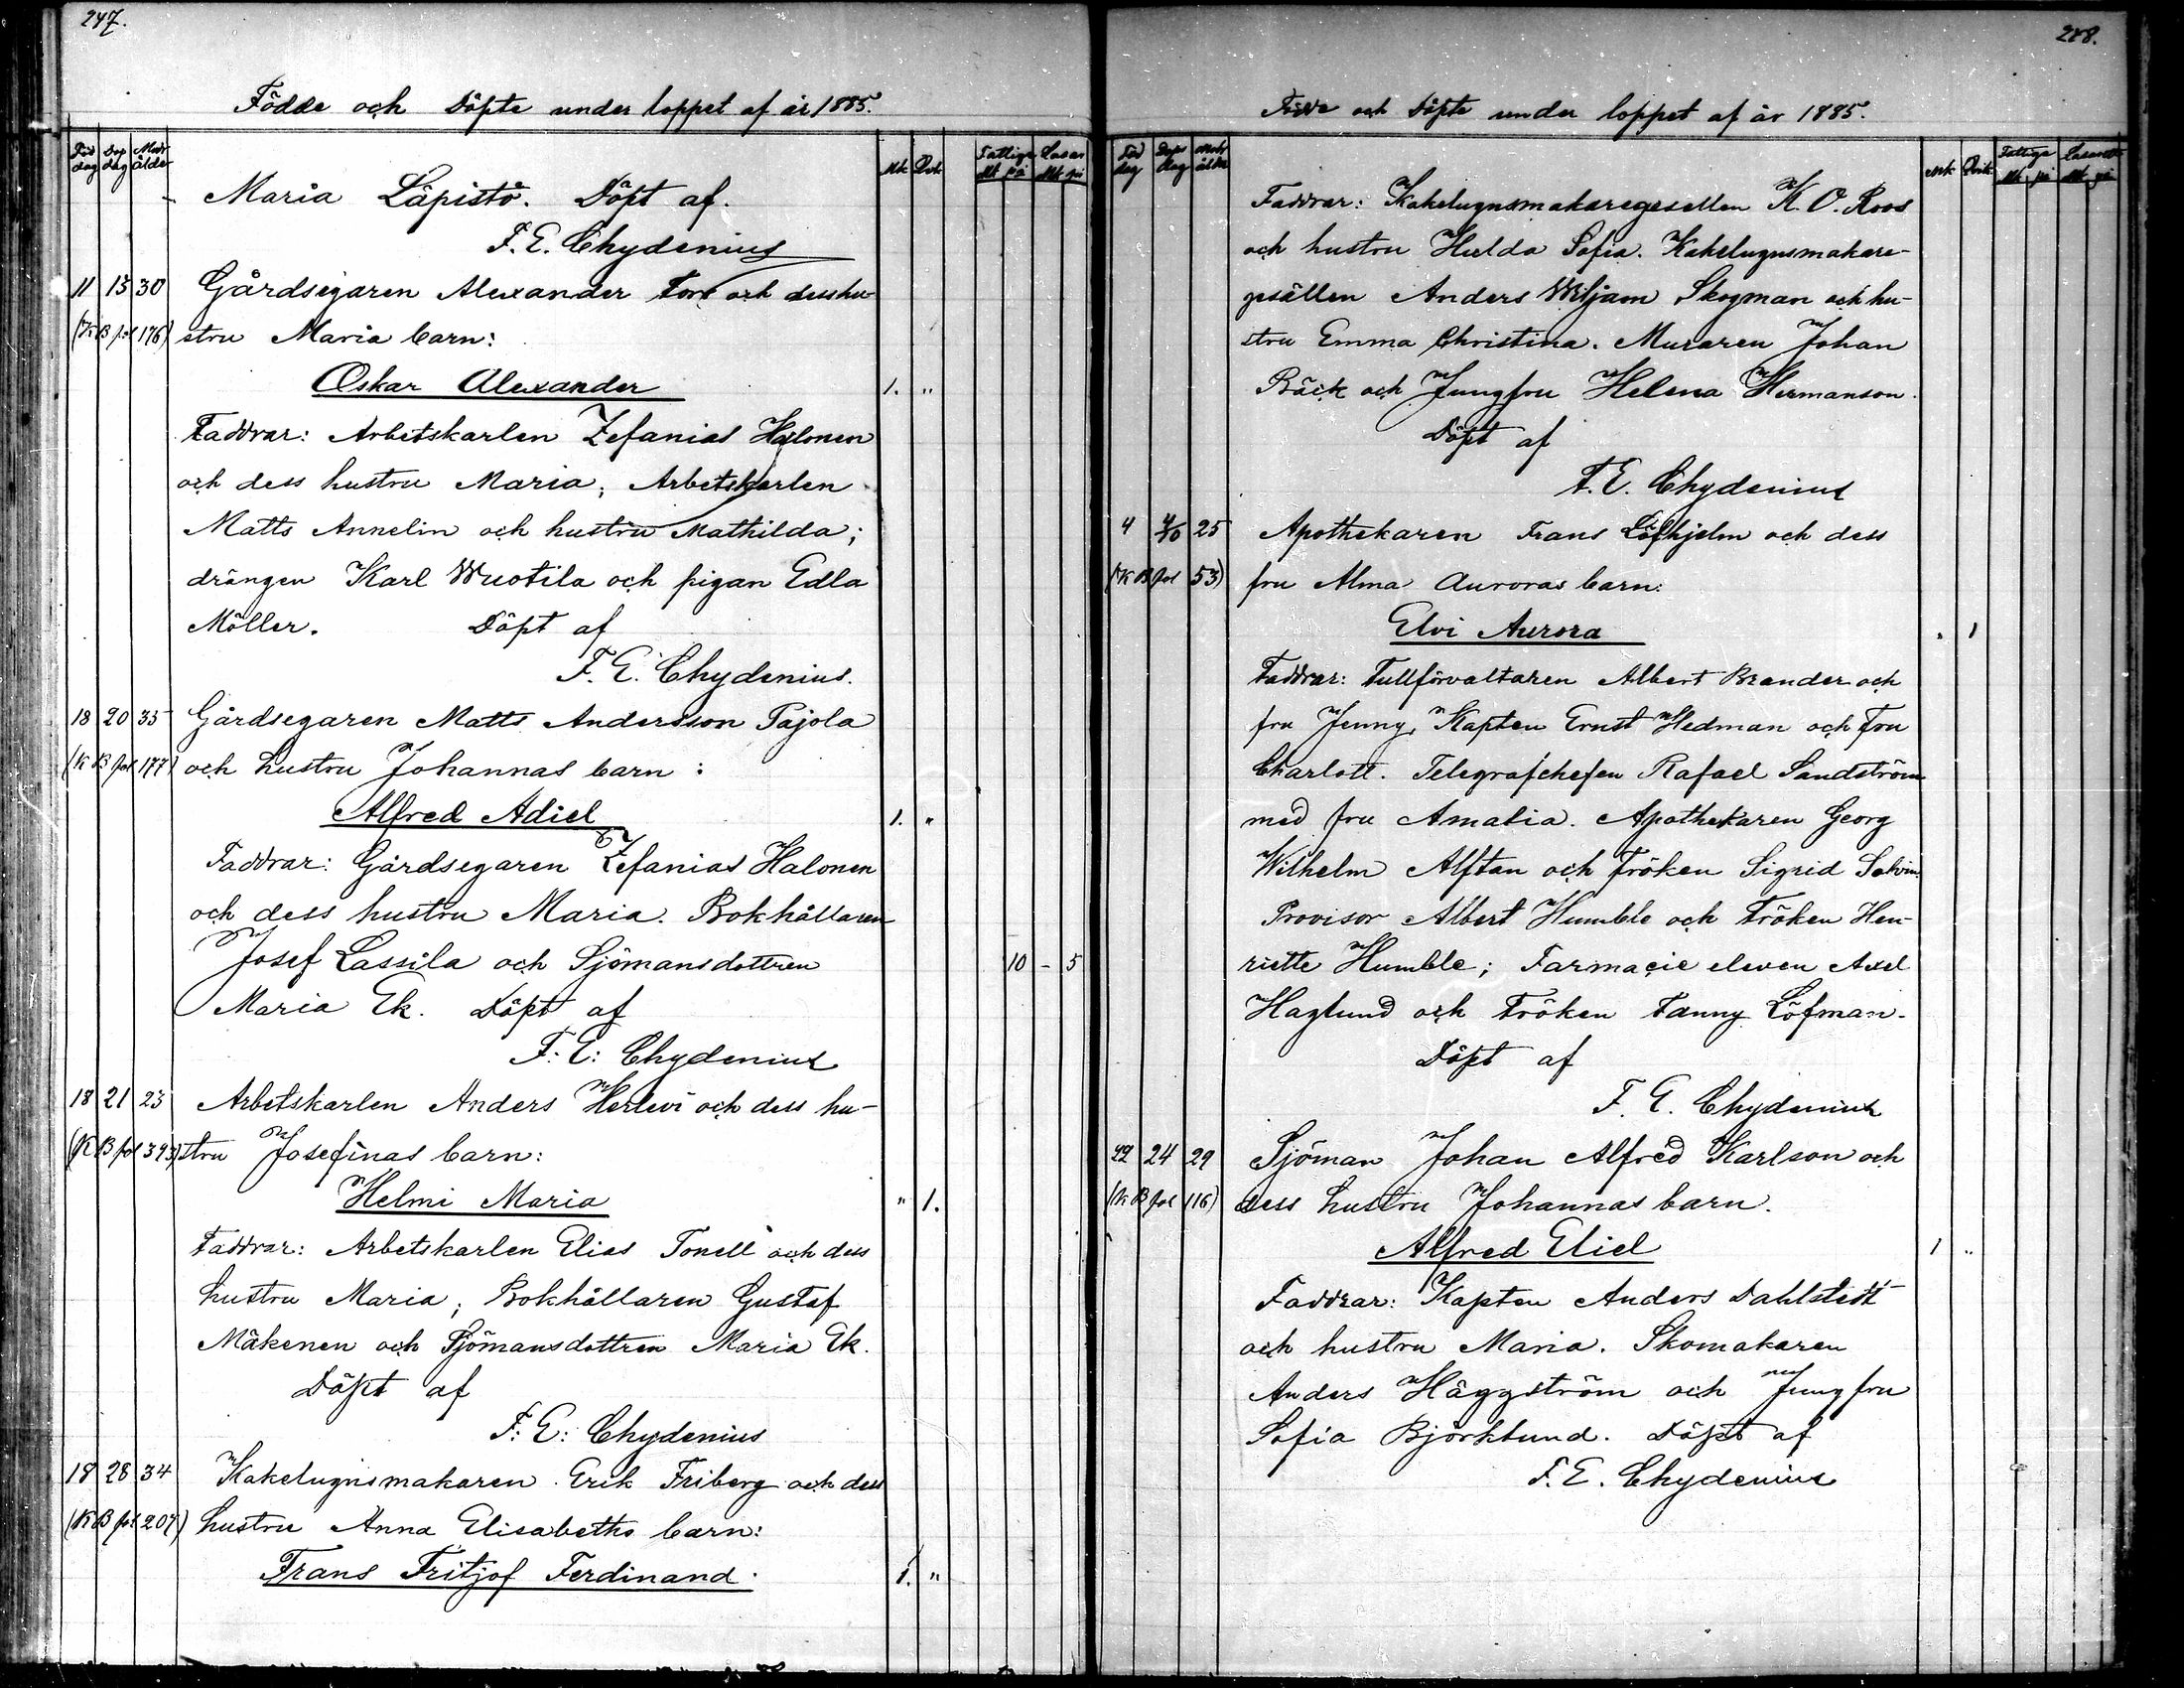 247.
Födde och Döpte under loppet af år 1885.
Föd dag Dop dag Modr ålder Mk Qvk Fattiga Mk pi Lasar Mk pi
Maria Läpistö. Döpt af
F. E. Chydenius
11 13 30 Gårdsegaren Alexander Fors och dess hu-
(K B fol 176) stru Maria barn:
Oskar Alexander 1. "
Faddrar: Arbetskarlen Zefanias Halonen
och dess hustru Maria; Arbetskarlen
Matts Annelin och hustru Mathilda;
drängen Karl Wuotila och pigan Edla
Möller. Döpt af
F. E. Chydenius.
18 20 35 Gårdsegaren Matts Andersson Pajola
(K B fol 177) och hustru Johannas barn:
Alfred Adiel 1. "
Faddrar: Gårdsegaren Zefanias Halonen
och dess hustru Maria. Bokhållaren
Josef Lassila och Sjömansdottren 10 - 5
Maria Ek. Döpt af
F. E: Chydenius
18 21 23 Arbetskarlen Anders Herlevi och dess hu-
(K B fol 393) stru Josefinas barn:
Helmi Maria " 1.
Faddrar: Arbetskarlen Elias Tonell och dess
hustru Maria; Bokhållaren Gustaf
Mäkenen och Sjömansdottren Maria Ek.
Döpt af
F. E: Chydenius
18 28 34 Kakelugnsmakaren Erik Friberg och dess
(K B fol 207) hustru Anna Elisabeths barn:
Frans Fritjof Ferdinand. 1. "
248.
Födde och Döpte under loppet af år 1885.
Föd dag Dops dag Modr ålder Mk Qvk Fattiga Mk pi Lasarett Mk pi
Faddrar: Kakelugnsmakaregesellen K. O. Roos
och hustru Hulda Sofia. Kakelugnsmakare-
gesällen Anders Wiljam Skogman och hu-
stru Emma Christina. Muraren Johan
Bäck och Jungfru Helena Hermanson.
Döpt af
F. E. Chydenius
4 4/10 25 Apothekaren Frans Löfhjelm och dess
(K B fol 53) fru Alma Auroras barn:
Elvi Aurora " 1
Faddrar: Tullförvaltaren Albert Brander och
fru Jenny, Kapten Ernst Hedman och Fru
Charlott. Telegrafchefen Rafael Sandström
med fru Amalia. Apothekaren Georg
Wilhelm Alftan och Fröken Sigrid
Provisor Albert Humble och Fröken Hen-
riette Humble; Farmacie eleven Axel
Haglund och Fröken Fanny Löfman.
Döpt af
F. E. Chydenius
22 24 29 Sjöman Johan Alfred Karlson och
(K B fol 116) dess hustru Johannas barn.
Alfred Eliel 1 "
Faddrar: Kapten Anders Dahlstedt
och hustru Maria. Skomakaren
Anders Häggström och Jungfru
Sofia Björklund. Döpt af
F. E. Chydenius